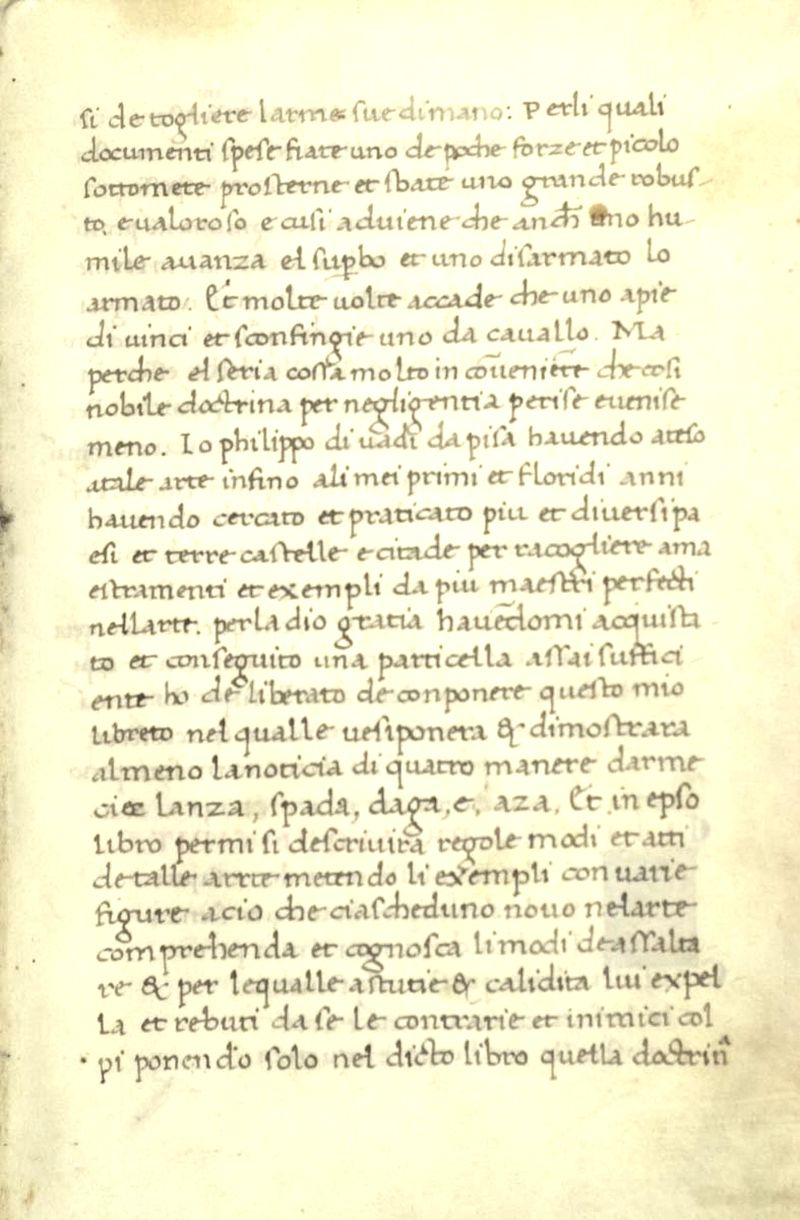 si de togliere larme sue di mano: Per li quali
documenti spese fiate uno de poche forze et picolo
sottomete prosterne et sbate uno grande robus
to, e ualoroso e cusi aduiene che anch uno hu
mile auanza el supbo et uno disarmato lo
armato. Et molte uolte accade che uno apie
di uinci et sconfingie uno da cauallo. Ma
perche el seria cossa molto in coueniēte che cosi
nobile doctrina per negligentia perise e uenise
meno. Io philippo di uadi da pisa hauendo ateso
a tale arte infino ali mei primi et floridi anni
hauendo cercato et praticato piu et diuersi pa
esi et terre castelle e citade per racogliere ama
estramenti et exempli da piu maestri perfecti
nellarte. per la dio gratia hauēdomi acquista
to et conseguito una particella assai suffici
ente ho deliberato de conponere questo mio
libreto nel qualle uesiponera & dimostrara
almeno la noticia di quatro manere darme
cioe lanza, spada, daga, e, aza. Et in epso
libro per mi si descriuira regole modi et atti
de talle arte metendo li exempli con uarie
figure acio che ciascheduno nouo nelarte
comprehenda et cognosca li modi de assalta
re & per le qualle astutie & calidita lui expel
la et rebuti da se le contrarie et inimici col
pi ponendo solo nel dicto libro quella doctrinª